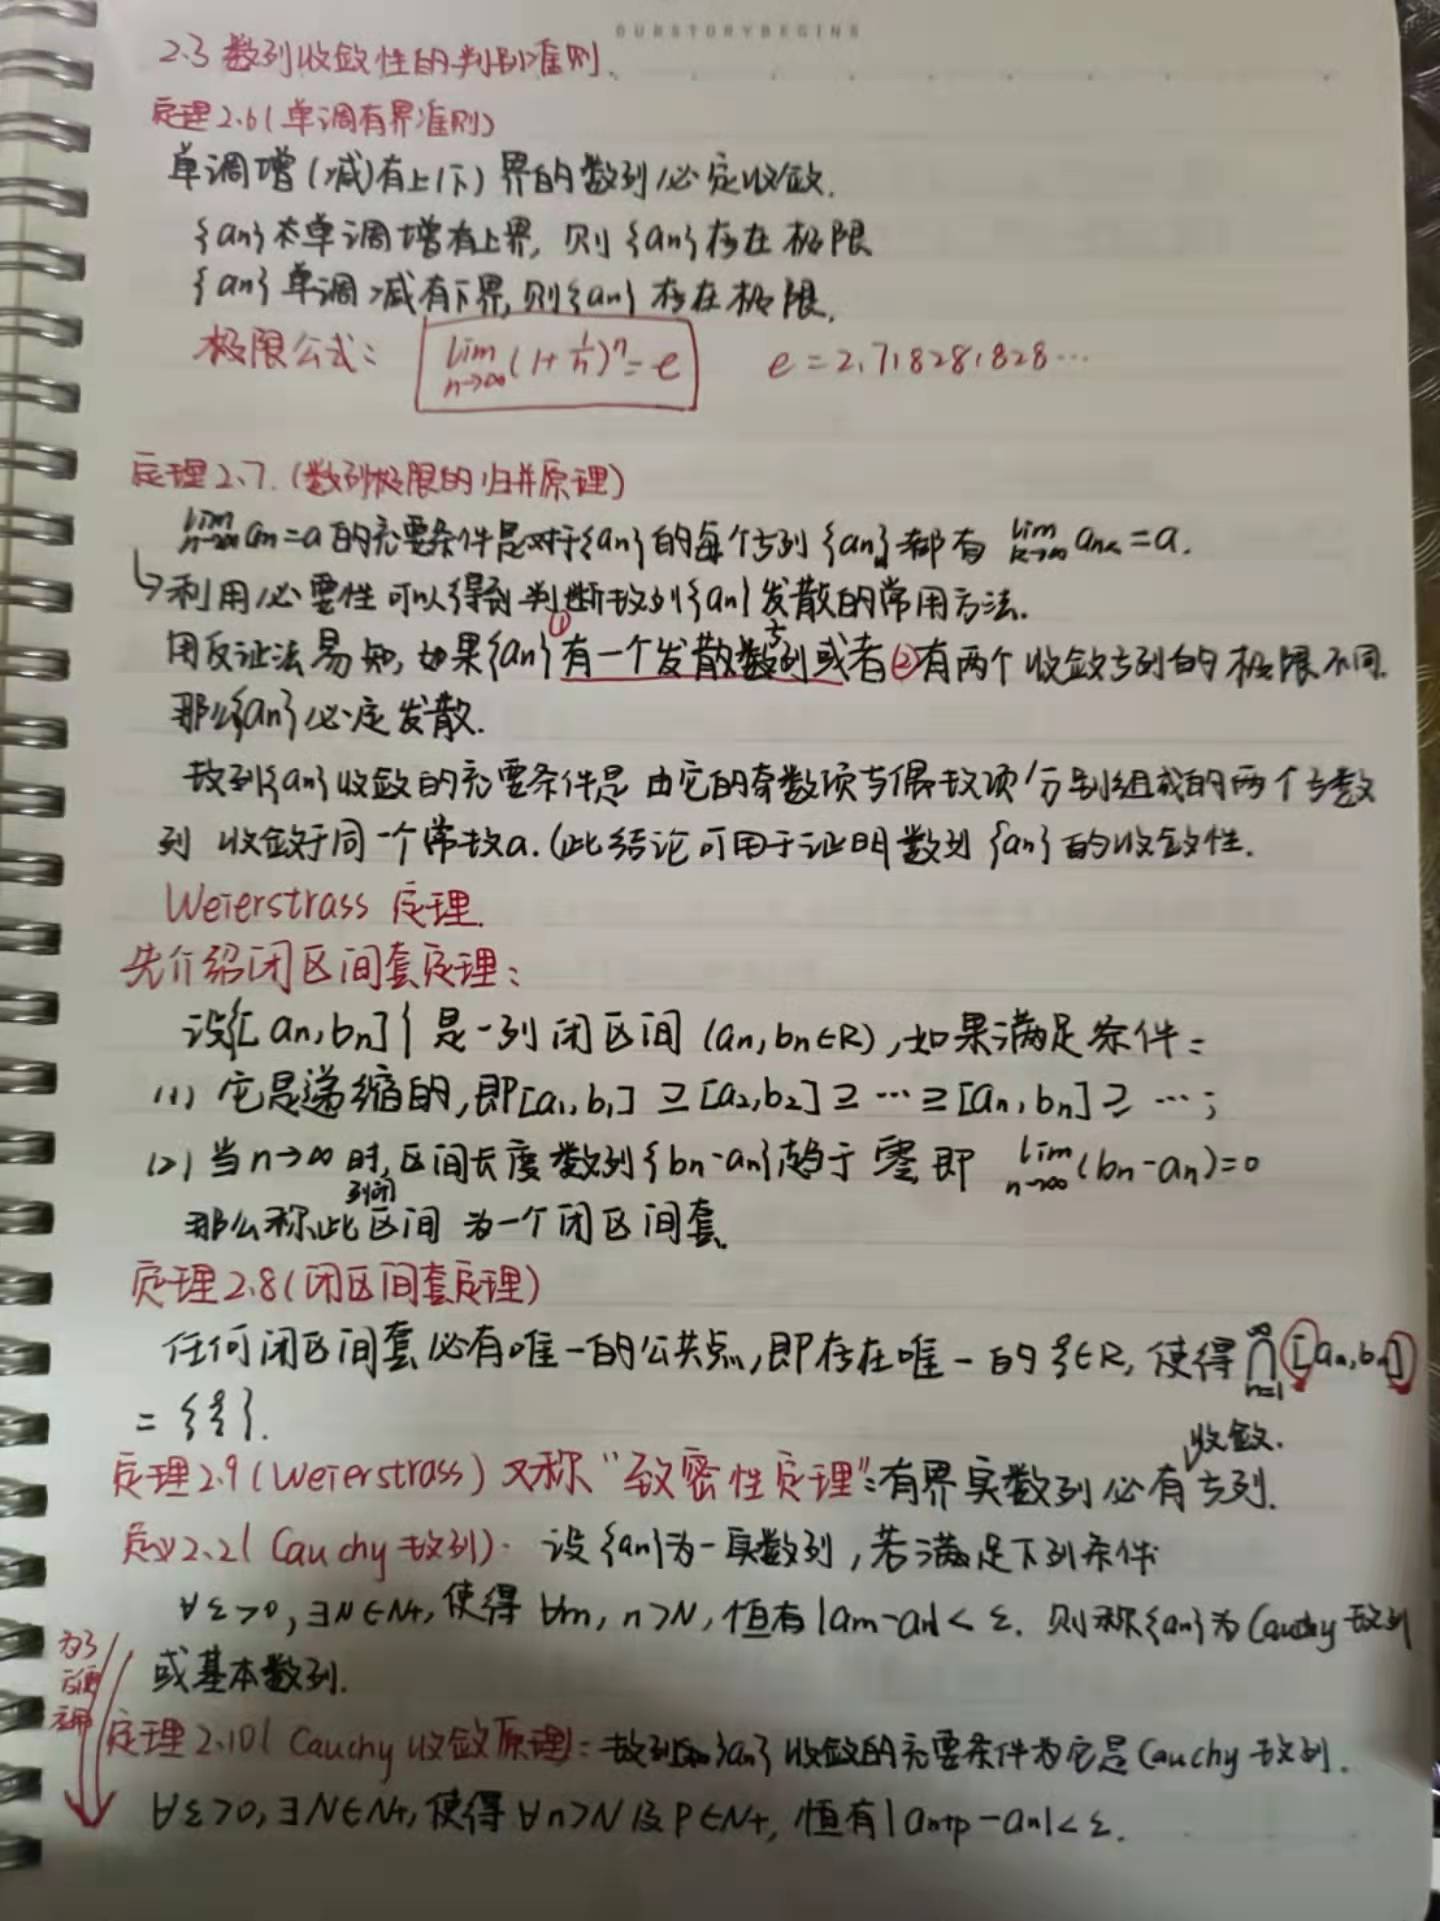 OURSTORYBEGINS
2.3 数列收敛性的判别准则.
定理2.6(单调有界准则)
单调增(减)有上(下)界的数列必定收敛.
{an}单调增有上界, 则{an}存在极限
{an}单调减有下界,则{an}存在极限.
极限公式: lim n→∞ (1+1/n)^n=e e=2.718281828…
定理2.7.(数列极限的归并原理)
lim n→∞ an=a的充要条件是对于{an}的每个子列{ank}都有 lim k→∞ ank=a.
↳利用必要性可以得到判断数列{an}发散的常用方法.
用反证法易知,如果{an}①有一个发散子列或者②有两个收敛子列的极限不同.
那么{an}必定发散.
数列{an}收敛的充要条件是由它的奇数项与偶数项分别组成的两个子数
列 收敛于同一个常数a.(此结论可用于证明数列{an}的收敛性.
Weierstrass 定理.
先介绍闭区间套定理:
设{[an,bn]}是一列闭区间(an,bn∈R),如果满足条件:
(1) 它是递缩的,即[a1,b1]⊇[a2,b2]⊇…⊇[an,bn]⊇…;
(2)当n→∞时,区间长度数列{bn-an}趋于零即 lim n→∞ (bn-an)=0
那么称此列闭区间为一个闭区间套.
定理2.8(闭区间套定理)
任何闭区间套必有唯一的公共点,即存在唯一的ξ∈R,使得 ∞∩n=1 [an,bn]
={ξ}.
定理2.9(Weierstrass)又称“致密性定理”:有界实数列必有收敛子列.
定义2.2(Cauchy数列). 设{an}为一实数列,若满足下列条件
∀ε>0,∃N∈N+,使得∀m,n>N,恒有|am-an|<ε. 则称{an}为Cauchy数列
或基本数列.
为了
方便
定理2.10(Cauchy收敛原理):数列{an}收敛的充要条件为它是Cauchy数列.
∀ε>0,∃N∈N+,使得∀n>N及P∈N+,恒有|an+p-an|<ε.